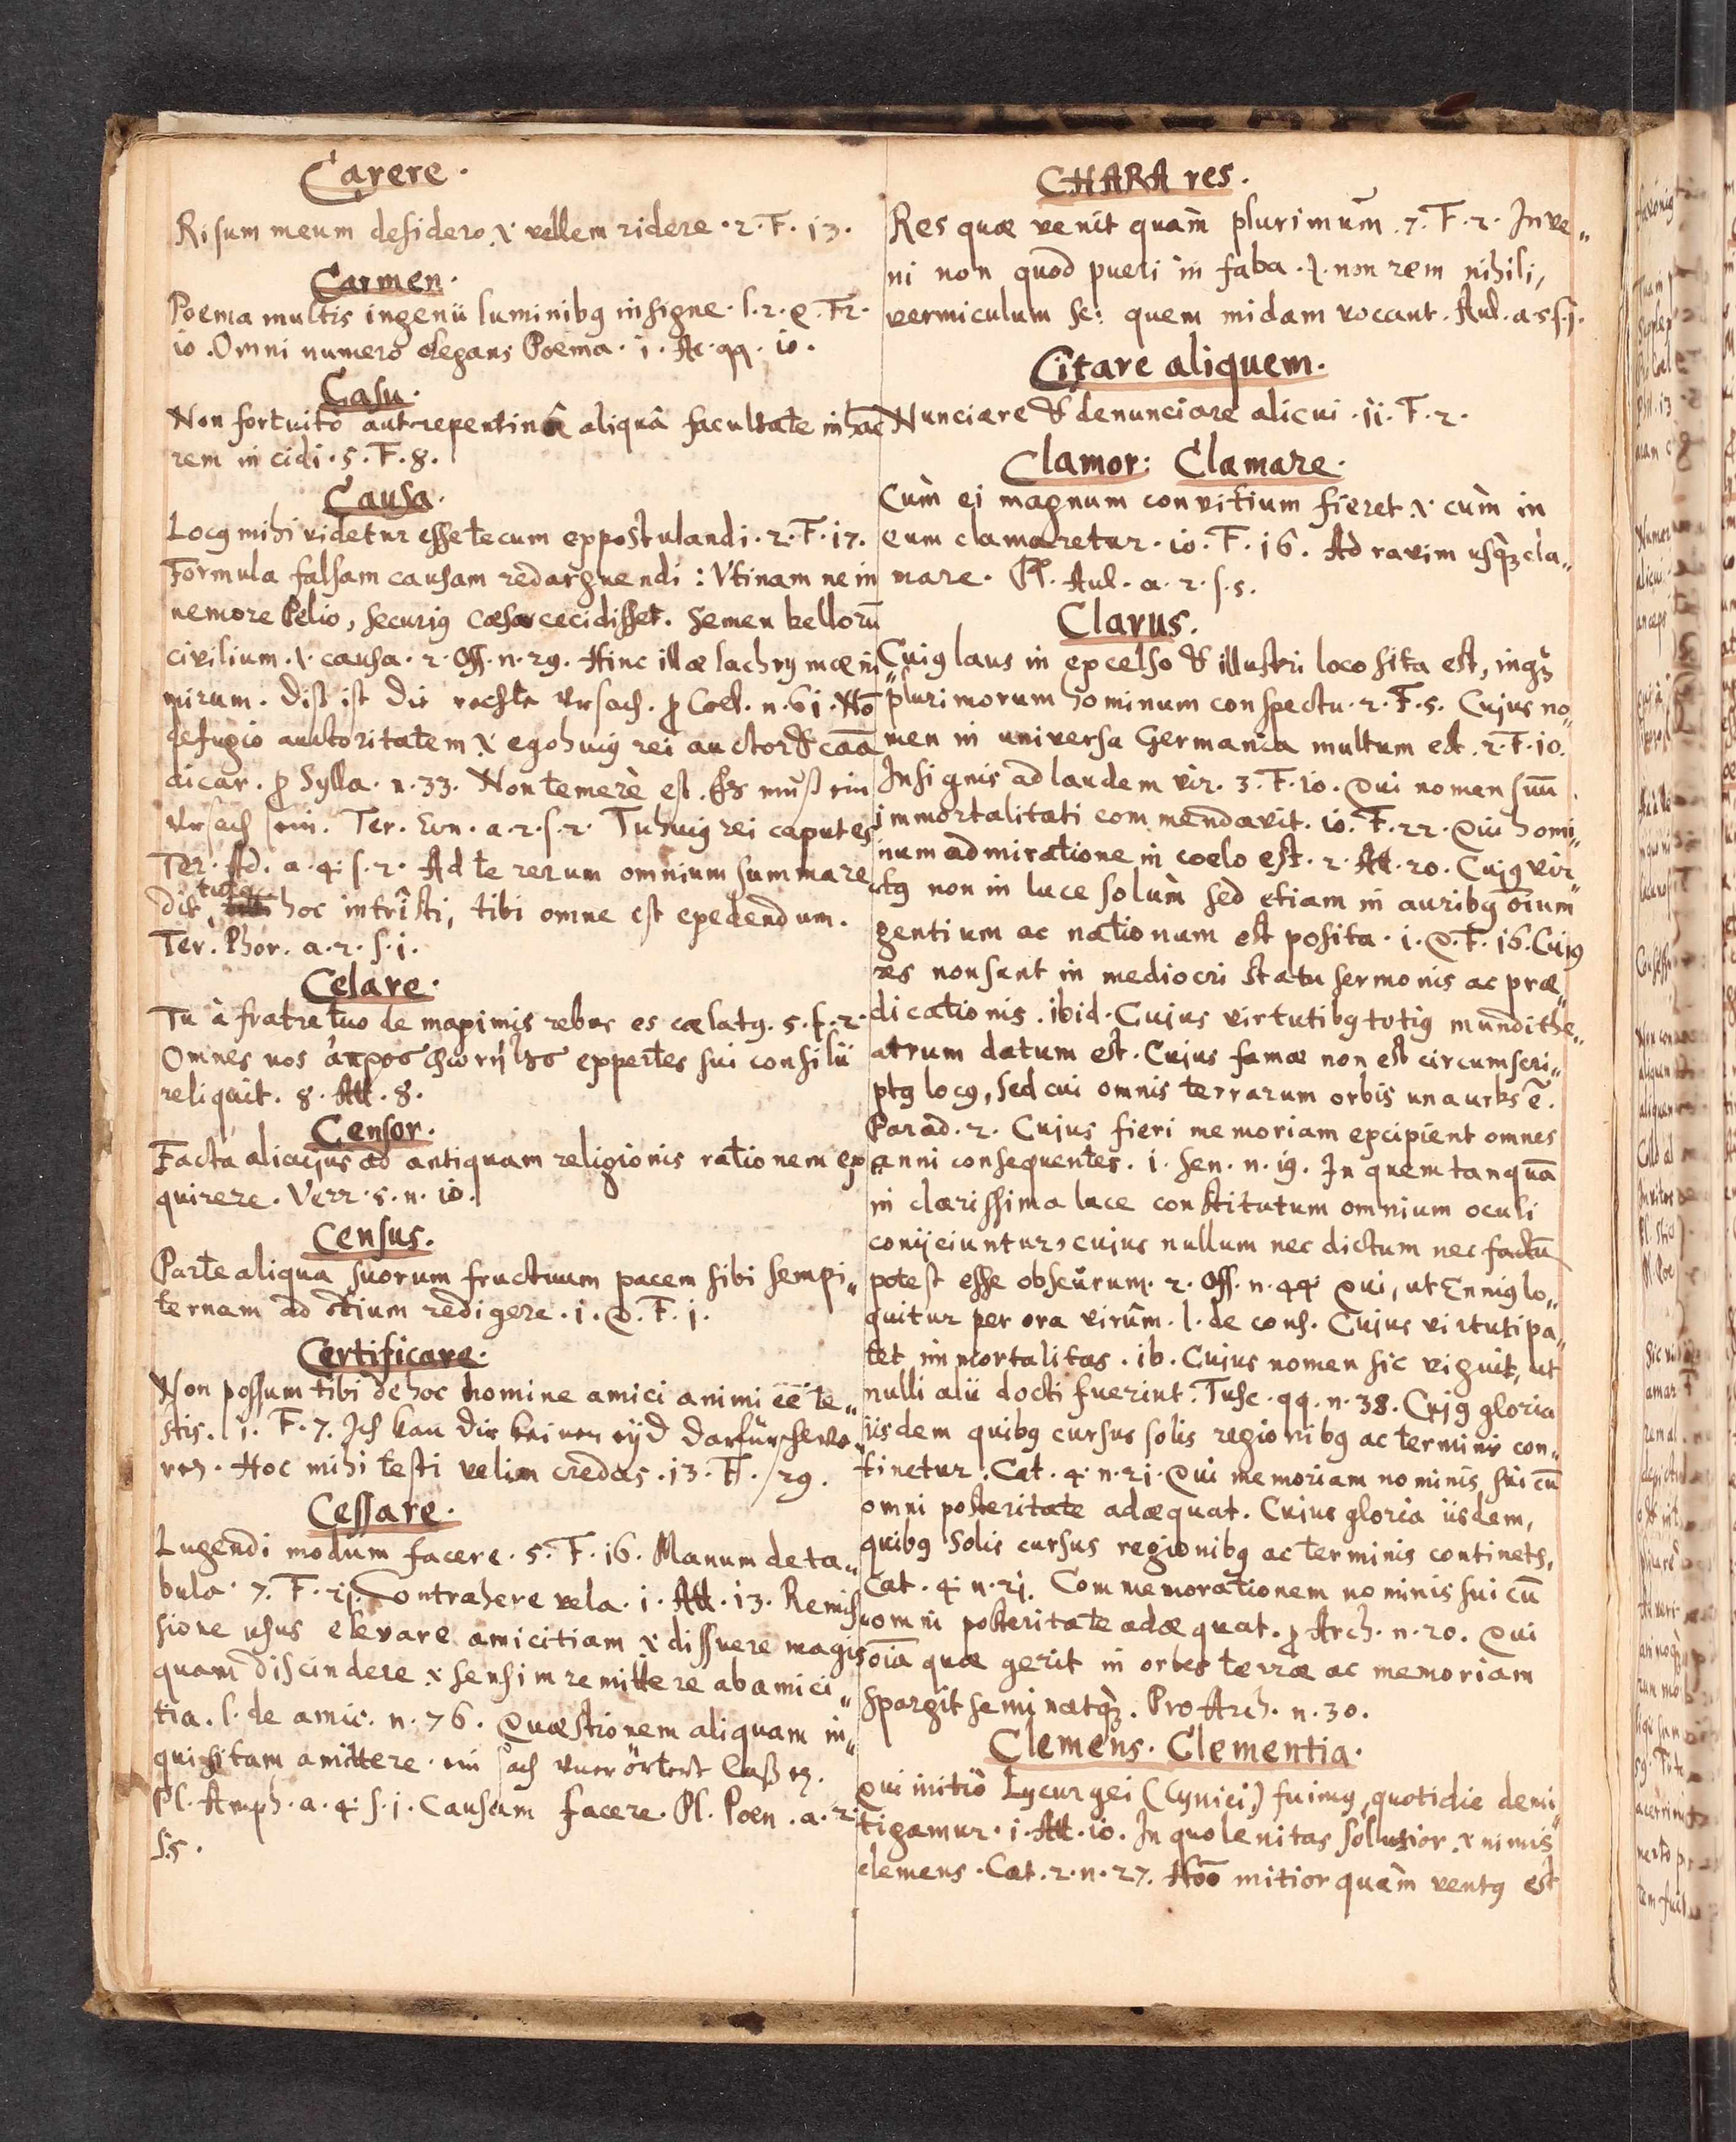 Carere.
Risum meum desidero .i. vellem ridere. 2. F. 13.
Carmen.
Poema multis ingenii luminibꝰ insigne. l. 2. Q. Fr.
10. Omni numero elegans Poema. 1. Ac. qq. 10.
Casu.
Non fortuitò aut repentinâ aliquâ facultate in hāc
rem incidi. 5. F. 8.
Causa.
Locꝰ mihi videtur esse tecum expostulandi. 2. F. 17.
Formula falsam causam redarguendi: Vtinam ne in
nemore Pelio, securiꝰ cæsæ cecidisset. Semen bellorū
civilium .i. causa. 2. Off. n. 29. Hinc illæ lachrymæ ni
mirum. Diß ist die rechte Vrsach. ꝓ Coel. n. 61. Nō
defugio auctoritatem .i. ego huiꝰ rei auctor & cāā
dicar. ꝓ Sylla. n. 33. Non temerè est. Es muß ein
Vrsach sein. Ter. Eun. a. 2. s. 2. Tu huiꝰ rei caput es
Ter. Ad. a. 4. s. 2. Ad te rerum omnium summa re„
dit, tute hoc intrîsti, tibi omne est exedendum.
Ter. Phor. a. 2. s. 1.
Celare.
Tu à fratre tuo de maximis rebus es cælatꝰ. 5. f. 2.
Omnes nos expertes sui consilii
reliquit. 8. Att. 8.
Censor.
Facta alicujus ad antiquam religionis rationem ex„
quirere. Verr. 5. n. 10.
Census.
Parte aliqua suorum fructuum pacem sibi sempi„
ternam ad otium redigere. 1. Q. F. 1.
Certificare.
Non possum tibi de hoc homine amici animi ēē te„
stis. 1. F. 7. Ich kan dir keinen eyd darfür schwe„
ren. Hoc mihi testi velim credas. 13. F. 29.
Cessare.
Lugendi modum facere. 5. F. 16. Manum de ta„
bula. 7. F. 25. Contrahere vela. 1. Att. 13. Remis„
sione usus elevare amicitiam .i. dissuere magis
quam discindere .i. sensim remittere ab amici„
tia. l. de amic. n. 76. Quæstionem aliquam in„
quisitam amittere. ein sach vnerörtert laßen.
Pl. Amph. a. 4. s. 1. Causam facere. Pl. Poen. a. 2.
s. 5.
CHARA res.
Res quæ venit quàm plurimùm. 7. F. 2. Inve„
ni non quod pueri in faba .i. non rem nihili,
vermiculum sc: quem midam vocant. Aul. a. 5. s. 1.
Citare aliquem.
Nunciare & denunciare alicui. 11. F. 2.
Clamor: Clamare.
Cùm ei magnum convitium fieret .i. cùm in
eum clamaretur. 10. F. 16. Ad ravim usq́ꝫ cla„
mare. Pl. Aul. a. 2. s. 5.
Clarus.
Cuiꝰ laus in excelso & illustri loco sita est, inq́ꝫ
„plurimorum hominum conspectu. 2. F. 5. Cujus no„
men in universa Germania multum est. 2. F. 10.
Insignis ad laudem vir. 3. F. 10. Qui nomen suū
immortalitati commendavit. 10. F. 22. Qui homi„
num admiratione in coelo est. 2. Att. 20. Cuiꝰ vir„
tꝰ non in luce solùm sed etiam in auribꝰ oīum
gentium ac nationum est posita. 1. Q. F. 16. Cuiꝰ
res non sunt in mediocri statu sermonis ac præ„
dicationis. ibid. Cujus virtutibꝰ totiꝰ mundi the„
atrum datum est. Cujus famæ non est circumscri„
ptꝰ locꝰ, sed cui omnis terrarum orbis una urbs ē.
Parad. 2. Cujus fieri memoriam excipient omnes
anni consequentes. 1. Sen. n. 19. In quem tanquā
in clarissima luce constitutum omnium oculi
coniiciuntur, cujus nullum nec dictum nec factū
potest esse obscurum. 2. Off. n. 44. Qui, ut Enniꝰ lo„
quitur per ora virûm. l. de cons. Cujus virtuti pa„
tet immortalitas. ib. Cujus nomen sic viguit, ut
nulli alii docti fuerint. Tusc. qq. n. 38. Cujꝰ gloria
iisdem quibꝰ cursus solis regionibꝰ ac terminis con„
tinetur. Cat. 4. n. 21. Qui memoriam nominis sui cū
omni posteritate adæquat. Cujus gloria iisdem,
quibꝰ Solis cursus regionibꝰ ac terminis continets,
Cat. 4. n. 21. Commemorationem nominis sui cū
omni posteritate adæquat. ꝓ Arch. n. 20. Qui
oīa quæ gerit in orbis terræ ac memoriam
spargit seminatq́ꝫ. Pro Arch. n. 30.
Clemens. Clementia.
Qui initiò Lycurgei (Cynici) fuimꝰ, quotidie demi„
tigamur. 1. Att. 10. In quo lenitas solutior .i. nimis
clemens. Cat. 2. n. 27. Hōō mitior quàm ventꝰ est